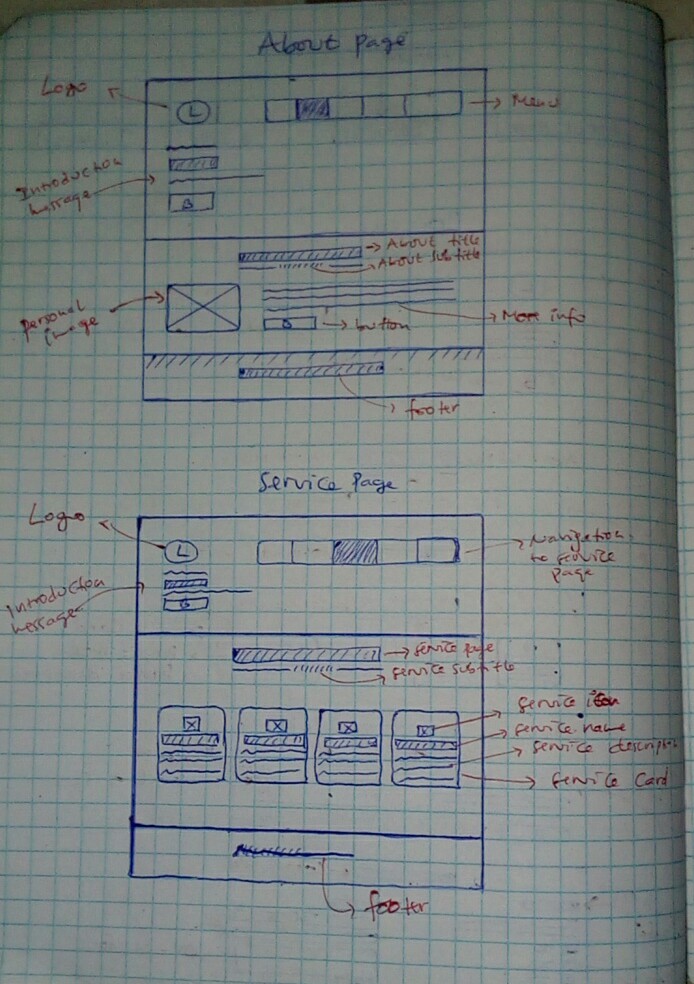 About page
Logo
L
Menu
Introduction
message
B
About title
About subtitle
personal
image
More info
B
button
footer
Service Page
Logo
L
Navigation
to service
page
Introduction
message
B
Service page
Service subtitle
Service icon
Service name
Service description
Service Card
footer